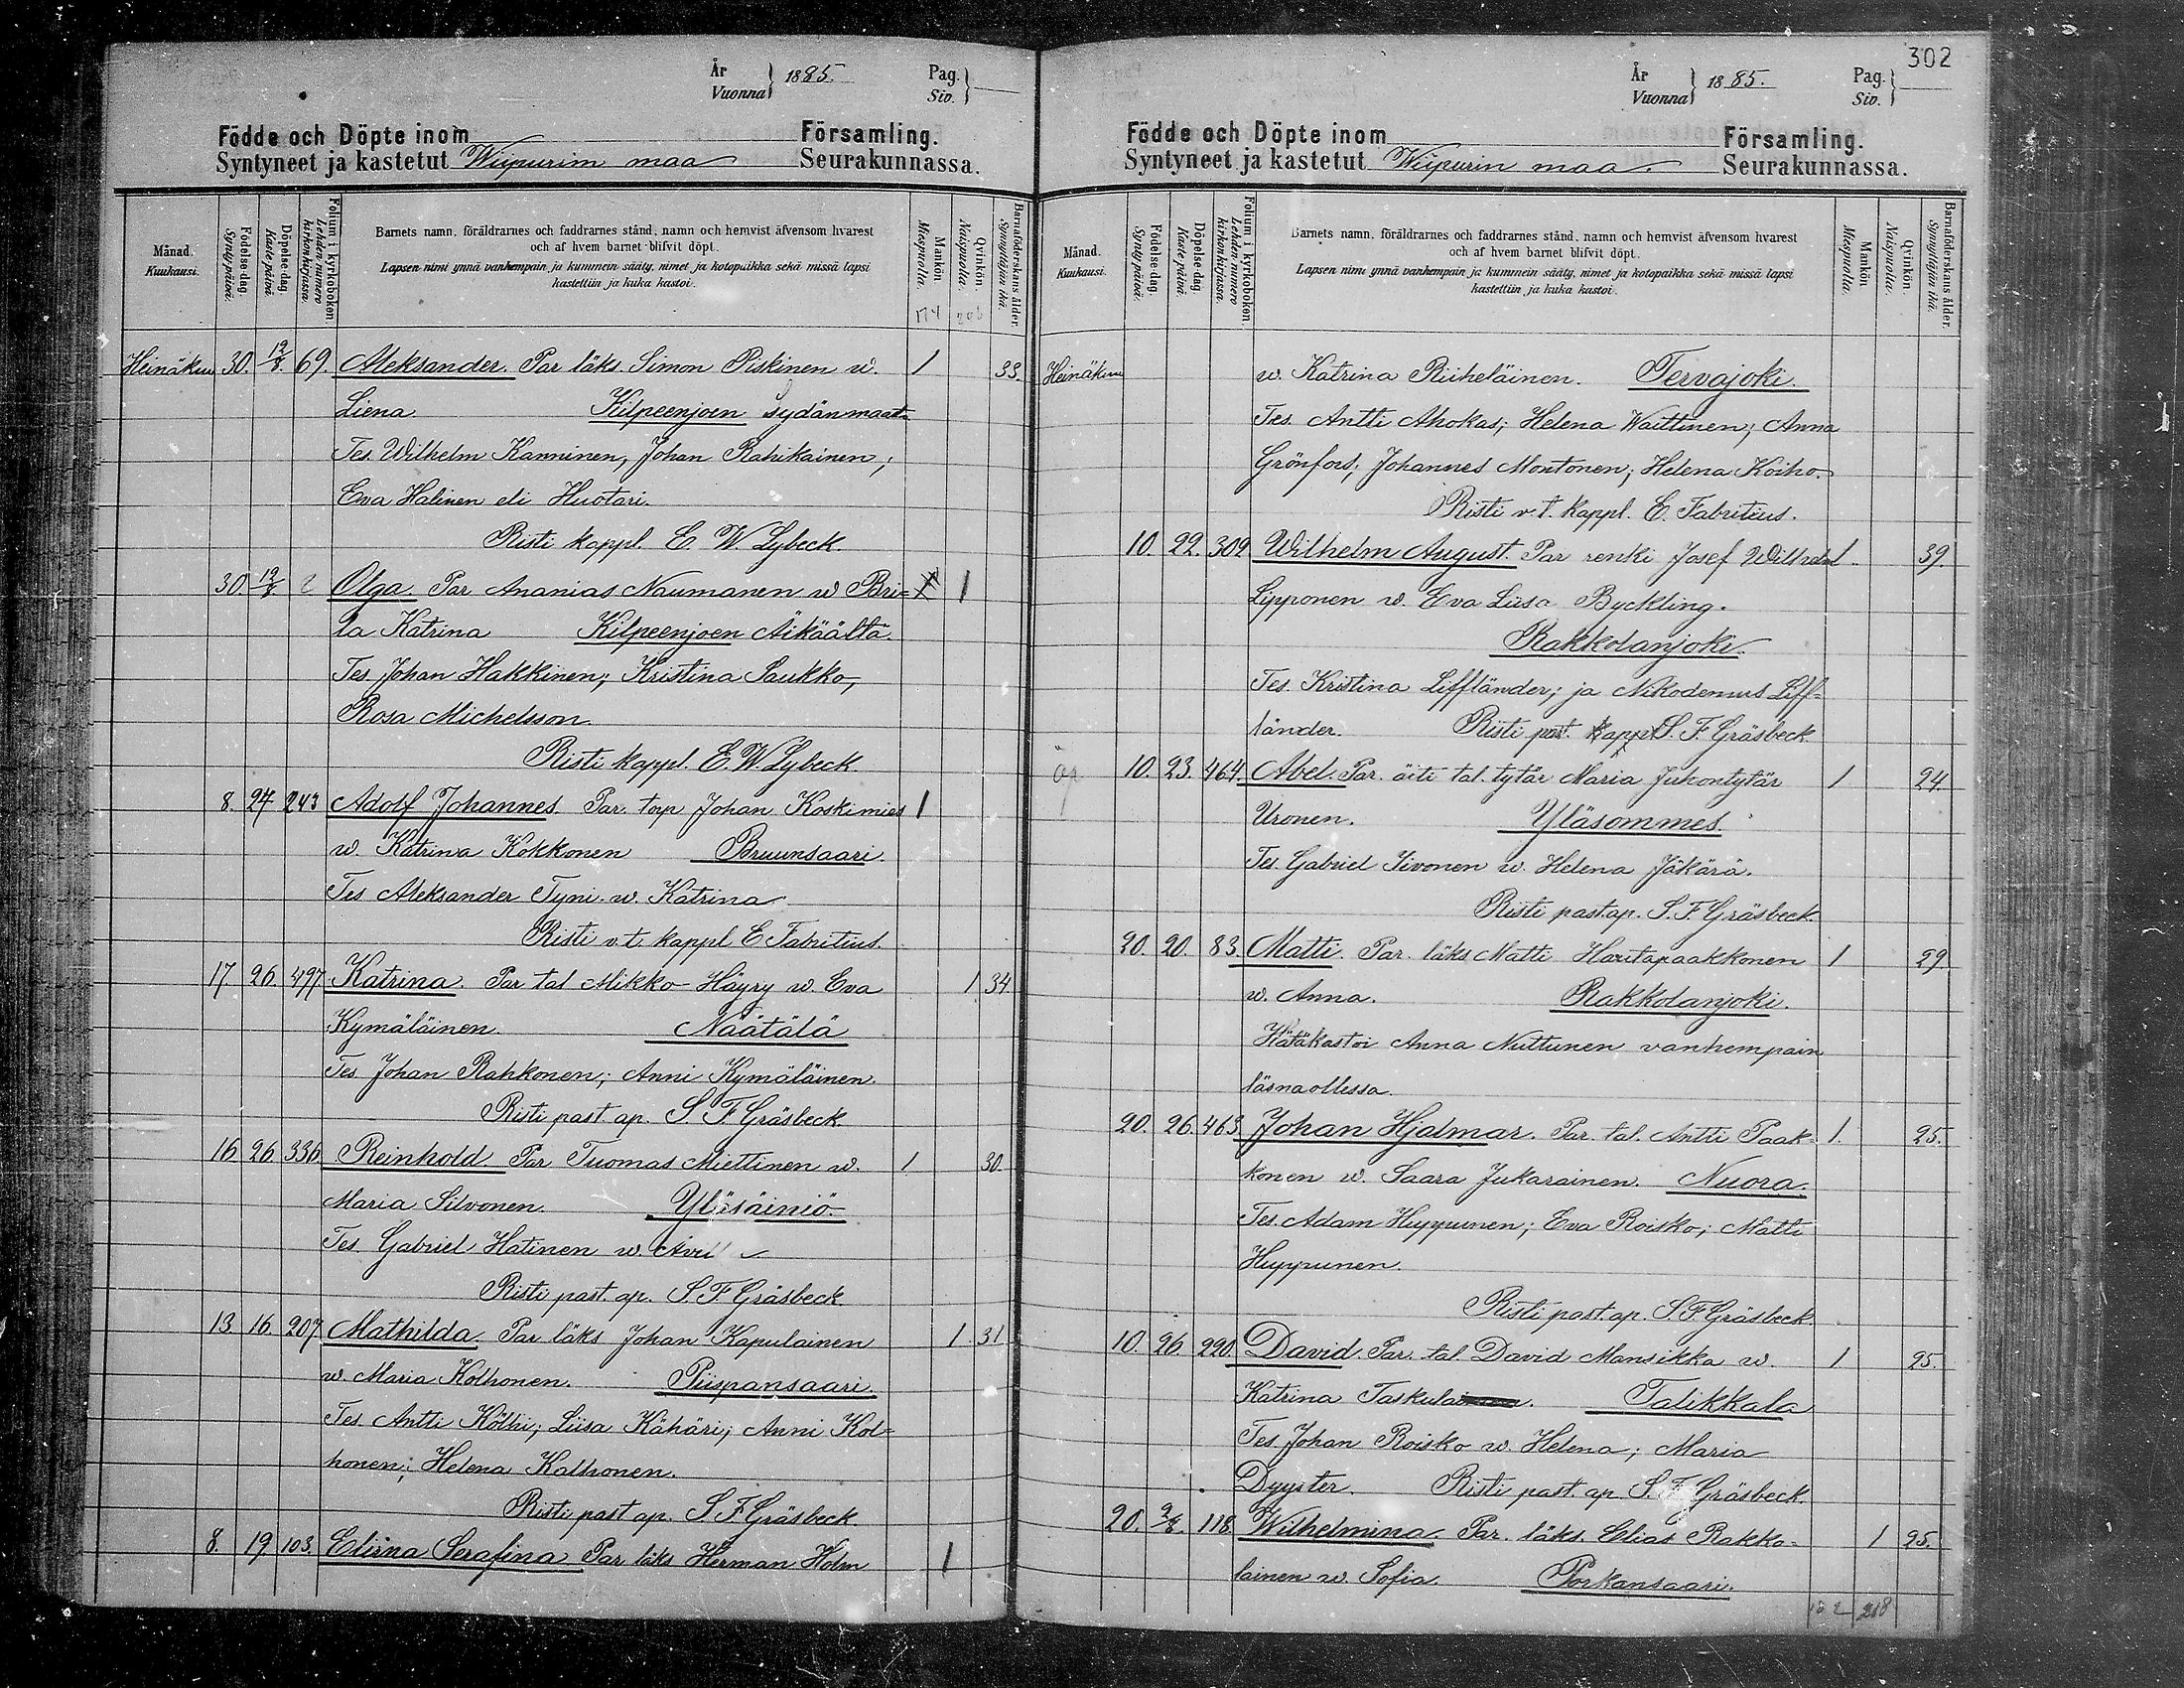 År
Vuonna } 1885.
Pag.
Siv. }
Födde och Döpte inom Församling.
Syntyneet ja kastetut Wiipurin maa Seurakunnassa.
Månad. Kuukausi.
Födelse-dag. Synty-päivä.
Döpelse-dag. Kaste-päivä.
Folium i kyrkoboken. Lehden numero kirkonkirjassa.
Barnets namn, föräldrarnes och faddrarnes stånd, namn och hemvist äfvensom hvarest
och af hvem barnet blifvit döpt.
Lapsen nimi ynnä vanhempain ja kummein sääty, nimet ja kotopaikka sekä missä lapsi
kastettiin ja kuka kastoi.
Mankön. Miespuolia.
Qvinkön. Naispuolia.
Barnaföderskans ålder. Synnyttäjän ikä.
Heinäkuu 30. 12/8. 69. Aleksander. Par läks Simon Piskinen w. 1 33.
Liena Kilpeenjoen sydänmaat
Tes. Wilhelm Kanninen, Johan Rahikainen;
Eva Halinen eli Huotari.
Risti kappl. E. W. Lybeck.
30. 12/8 Olga. Par Ananias Naumanen w Bri= 1
ta Katrina Kilpeenjoen Äikäältä
Tes Johan Hakkinen; Kristina Saukko,
Rosa Michelsson.
Risti kappl. E. W. Lybeck.
8. 27 243 Adolf Johannes. Par. torp Johan Koskimies 1
w. Katrina Kokkonen Bruunsaari.
Tes Aleksander Tyni w. Katrina
Risti v.t. kappl E Fabritius.
17. 26. 497 Katrina. Par tal Mikko Häyry w. Eva 1 34.
Kymäläinen. Näätälä
Tes Johan Rahkonen; Anni Kymäläinen.
Risti past ap. S. F. Gräsbeck.
16 26. 336 Reinhold. Par Tuomas Miettinen w. 1 30.
Maria Silvonen. Yläsäiniö
Tes Gabriel Hatinen w.
Risti past. ap. S. F Gräsbeck.
13 16. 207 Mathilda. Par läks Johan Kapulainen 1 31
w. Maria Kolhonen. Piispansaari.
Tes Antti Kölhi; Liisa Kähäri; Anni Kol=
honen; Helena Kalhonen.
Risti past ap. S. F Gräsbeck.
8. 19 103. Eliina Serafina Par läks Herman Holm 1
302
År
Vuonna } 1885.
Pag.
Siv. }
Födde och Döpte inom Församling.
Syntyneet ja kastetut Wiipurin maa Seurakunnassa.
Månad. Kuukausi.
Födelse-dag. Synty-päivä.
Döpelse-dag. Kaste-päivä.
Folium i kyrkoboken. Lehden numero kirkonkirjassa.
Barnets namn, föräldrarnes och faddrarnes stånd, namn och hemvist äfvensom hvarest
och af hvem barnet blifvit döpt.
Lapsen nimi ynnä vanhempain ja kummein sääty, nimet ja kotopaikka sekä missä lapsi
kastettiin ja kuka kastoi.
Mankön. Miespuolia.
Qvinkön. Naispuolia.
Barnaföderskans ålder. Synnyttäjän ikä.
Heinäkuu w. Katrina Riiheläinen. Tervajoki.
Tes. Antti Ahokas; Helena Waittinen; Anna
Grönfors; Johannes Montonen; Helena Koiho.
Risti v.t. kappl. E. Fabritius.
10. 22. 309 Wilhelm August. Par renki Josef Wilhelm 1 39.
Lipponen w. Eva Liisa Byckling.
Rakkolanjoki.
Tes. Kristina Liffländer; ja Nikodemus Liff=
länder. Risti past. kappl S. F. Gräsbeck.
äp 10. 23. 464. Abel. Par. äiti tal. tytär Maria Juhontytär 1 24.
Uronen. Yläsommes.
Tes. Gabriel Iivonen w. Helena Jäkärä.
Risti past.ap. S. F. Gräsbeck.
20. 20. 83. Matti. Par. läks Matti Haritapaakkonen 1 29.
w. Anna. Rakkolanjoki.
Hätäkastoi Anna Nuttunen vanhempain
läsnaollessa.
20. 26. 463. Johan Hjalmar. Par. tal. Antti Paak= 1. 25.
konen w. Saara Jukarainen. Nuora.
Tes. Adam Huppunen; Eva Roisko; Matti
Huppunen.
Risti past. ap. S. F. Gräsbeck.
10. 26. 220. David. Par. tal. David Mansikka w. 1 25.
Katrina Taskula Talikkala
Tes Johan Roisko w. Helena; Maria
Dyyster. Risti past. ap. S. F. Gräsbeck.
20. 2/8. 118. Wilhelmina. Par. läks. Elias Rakko= 1 25.
lainen w. Sofia. Porkansaari.
218